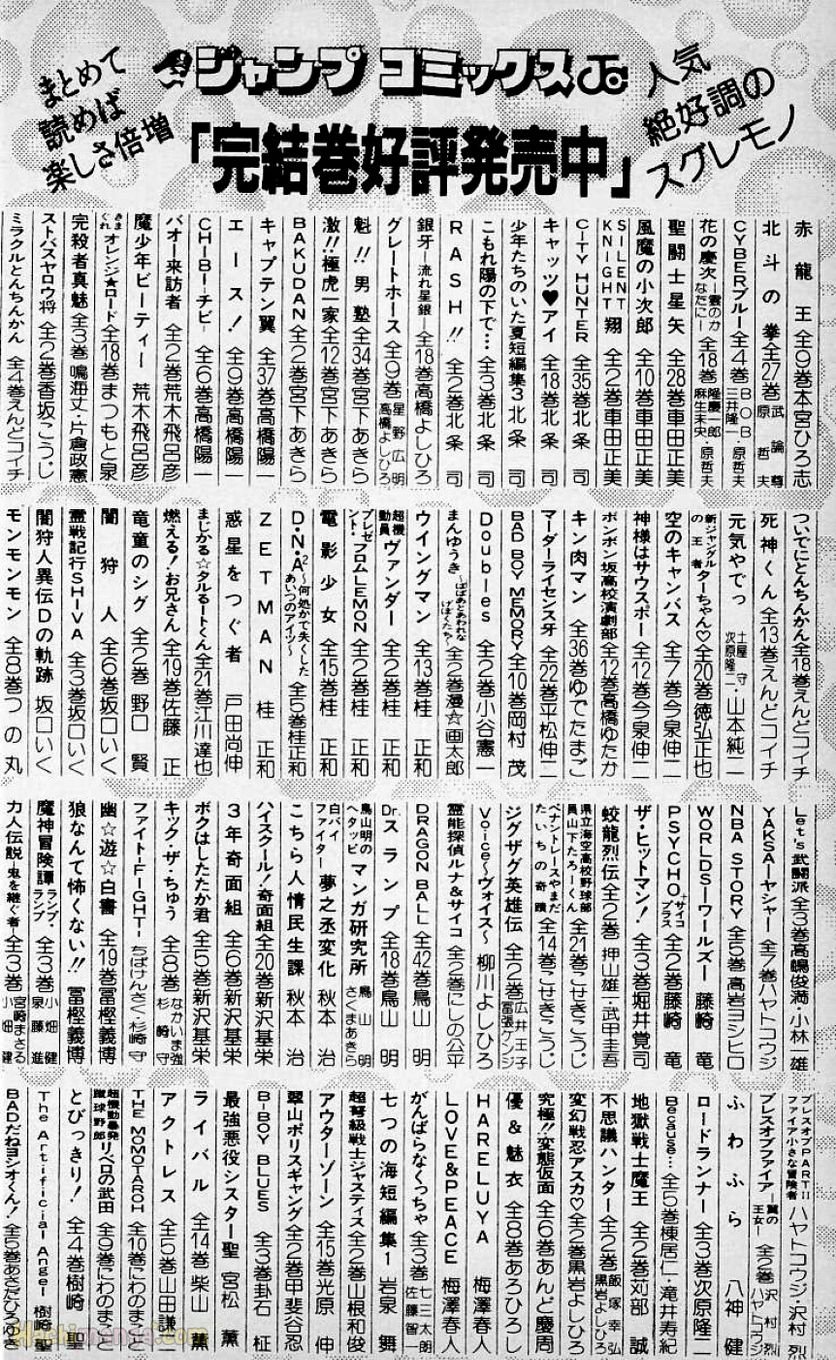 まとめて
読めば
楽しさ倍増
ジャンプ コミックス
人気
絶好調の
スグレモノ
「完結巻好評発売中」
赤龍王 全9巻 本宮ひろ志
北斗の拳 全27巻 武論尊 原哲夫
CYBERブルー 全4巻 BOB 三井隆一・原哲夫
花の慶次―雲のかなたに― 全18巻 隆慶一郎・原哲夫 麻生未央
聖闘士星矢 全28巻 車田正美
風魔の小次郎 全10巻 車田正美
SILENT KNIGHT 翔 全2巻 車田正美
CITY HUNTER 全35巻 北条司
キャッツ♥アイ 全18巻 北条司
少年たちのいた夏 短編集3 北条司
こもれ陽の下で… 全3巻 北条司
RASH!! 全2巻 北条司
銀牙―流れ星 銀― 全18巻 高橋よしひろ
グレートホース 全9巻 星野広明 高橋よしひろ
魁!!男塾 全34巻 宮下あきら
激!!極虎一家 全12巻 宮下あきら
BAKUDAN 全2巻 宮下あきら
キャプテン翼 全37巻 高橋陽一
エース! 全9巻 高橋陽一
CHIBI―チビ― 全6巻 高橋陽一
バオー来訪者 全2巻 荒木飛呂彦
魔少年ビーティー 荒木飛呂彦
きまぐれオレンジ★ロード 全18巻 まつもと泉
完殺者真魅 全3巻 鳴海丈・片倉政憲
ストバスヤロウ将 全2巻 香坂こうじ
ミラクルとんちんかん 全4巻 えんどコイチ
ついでにとんちんかん 全18巻 えんどコイチ
死神くん 全13巻 えんどコイチ
元気やでっ 土屋守 次原隆二・山本純二
新ジャングルの王者ターちゃん♡ 全20巻 徳弘正也
空のキャンバス 全7巻 今泉伸二
神様はサウスポー 全12巻 今泉伸二
ボンボン坂高校演劇部 全12巻 高橋ゆたか
キン肉マン 全36巻 ゆでたまご
マーダーライセンス牙 全22巻 平松伸二
BAD BOY MEMORY 全10巻 岡村茂
Doubles 全2巻 小谷憲一
まんゆうき〜ばばあとあわれなげぼくたち〜 全2巻 漫☆画太郎
ウイングマン 全13巻 桂正和
超機動員ヴァンダー 全2巻 桂正和
プレゼント・フロムLEMON 全2巻 桂正和
電影少女 全15巻 桂正和
D・N・A²〜何処かで失くしたあいつのアイツ〜 全5巻 桂正和
ZETMAN 桂正和
惑星をつぐ者 戸田尚伸
まじかる☆タルるートくん 全21巻 江川達也
燃える!お兄さん 全19巻 佐藤正
竜童のシグ 全2巻 野口賢
闇狩人 全6巻 坂口いく
霊戦記行SHIVA 全3巻 坂口いく
闇狩人異伝Dの軌跡 坂口いく
モンモンモン 全8巻 つの丸
Let's武闘派 全3巻 高嶋俊満・小林一雄
YAKSA―ヤシャ― 全7巻 ハヤトコウジ
NBA STORY 全5巻 高岩ヨシヒロ
WORLDS―ワールズ― 藤崎竜
PSYCHO+ サイコプラス 全2巻 藤崎竜
ザ・ヒットマン! 全3巻 堀井覚司
蛟龍烈伝 全2巻 押山雄一・武甲圭吾
県立海空高校野球部員山下たろーくん 全21巻 こせきこうじ
ペナントレースやまだたいちの奇蹟 全14巻 こせきこうじ
ジグザグ英雄伝 全2巻 広井王子 冨張ケンジ
Voice〜ヴォイス〜 柳川よしひろ
霊能探偵ルナ&サイコ 全2巻 にしの公平
DRAGON BALL 全42巻 鳥山明
Dr.スランプ 全18巻 鳥山明
鳥山明のヘタッピマンガ研究所 鳥山明 さくまあきら
白バイファイター 夢之丞変化 秋本治
こちら人情民生課 秋本治
ハイスクール!奇面組 全20巻 新沢基栄
3年奇面組 全6巻 新沢基栄
ボクはしたたか君 全5巻 新沢基栄
キック・ザ・ちゅう 全8巻 なかいま強 杉崎守
ファイト―FIGHT― ちばけんさく・杉崎守
幽☆遊☆白書 全19巻 冨樫義博
狼なんて怖くない!! 冨樫義博
魔神冒険譚ランプ・ランプ 全3巻 小畑健 泉藤進
力人伝説―鬼を継ぐ者― 全3巻 宮崎まさる 小畑健
ブレスオブPARTII ファイア小さな冒険者 ハヤトコウジ・沢村烈
ブレスオブファイア―翼の王女― 全2巻 沢村烈 ハヤトコウジ
ふわふら 八神健
ロードランナー 全3巻 次原隆二
Because… 全5巻 棟居仁・滝井寿紀
地獄戦士魔王 全2巻 苅部誠
不思議ハンター 全2巻 飯塚幸弘 黒岩よしひろ
変幻戦忍アスカ♡ 全2巻 黒岩よしひろ
究極!!変態仮面 全6巻 あんど慶周
優&魅衣 全8巻 あろひろし
HARELUYA 梅澤春人
LOVE&PEACE 梅澤春人
がんばらなくっちゃ 全3巻 七三太朗 佐藤智一
七つの海 短編集1 岩泉舞
超弩級戦士ジャスティス 全2巻 山根和俊
アウターゾーン 全15巻 光原伸
翠山ポリスギャング 全2巻 甲斐谷忍
B-BOY BLUES 全3巻 卦石柾
最強悪役シスター聖 宮松薫
ライバル 全14巻 柴山薫
アクトレス 全5巻 山田謙二
THE MOMOTAROH 全10巻 にわのまこと
超機動暴発蹴球野郎リベロの武田 全9巻 にわのまこと
とびっきり! 全4巻 樹崎聖
The Artificial Angel 樹崎聖
BADだねヨシオくん! 全5巻 あさだひろゆき